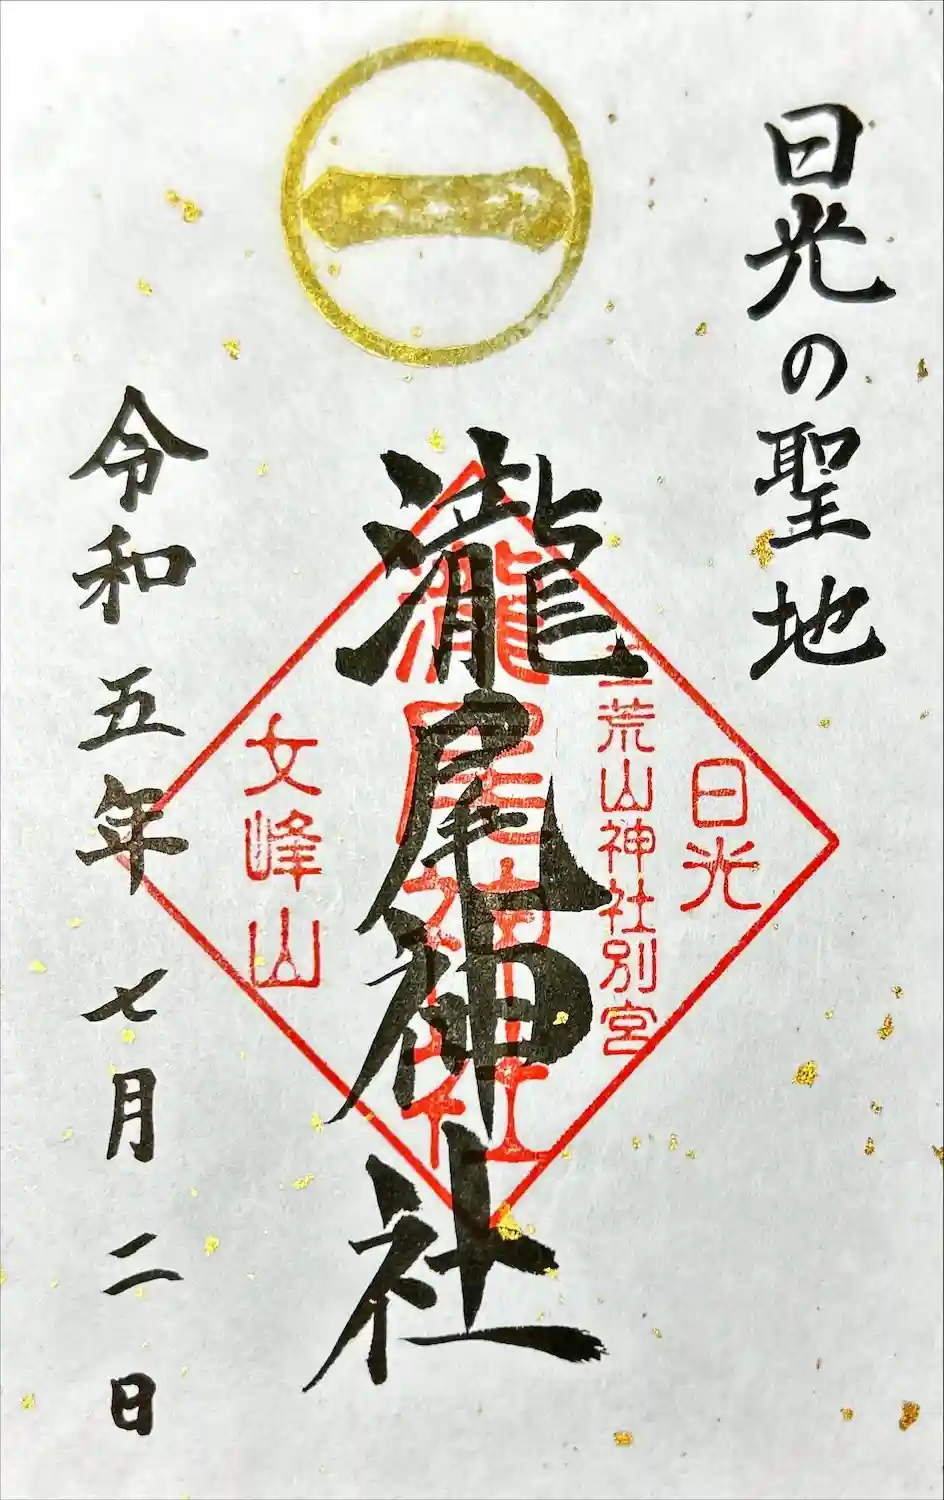 日光の聖地
一
瀧尾神社
日光
二荒山神社別宮
瀧尾神社
女峰山
令和五年七月二日